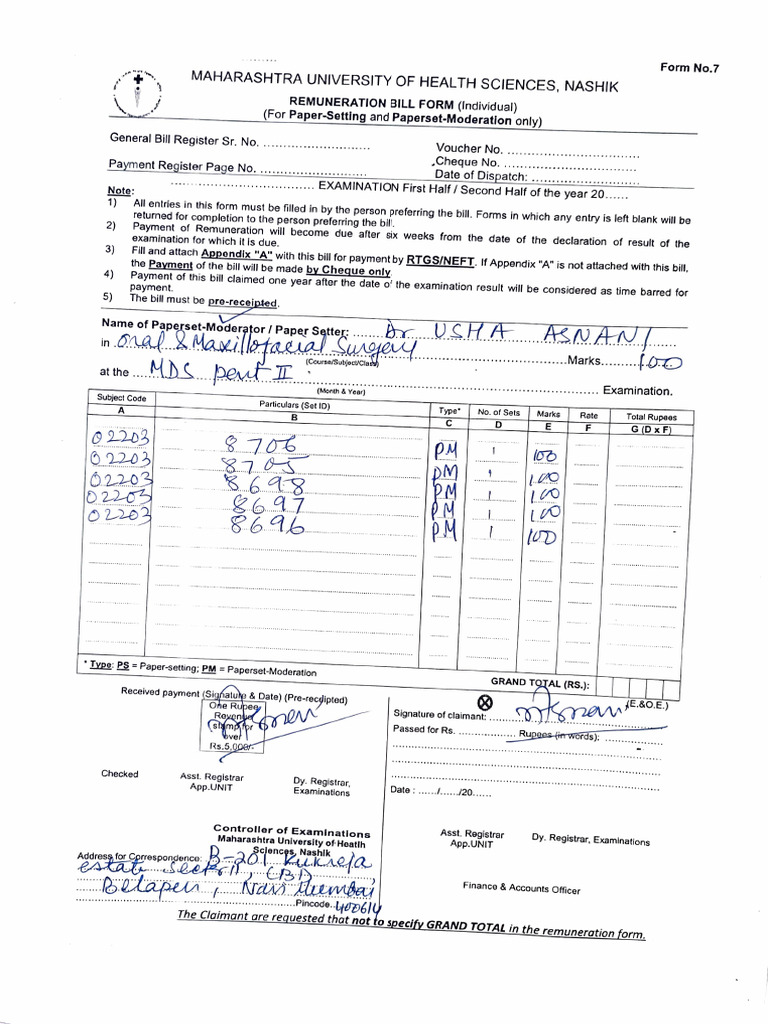 Form No.7
MAHARASHTRA UNIVERSITY OF HEALTH SCIENCES, NASHIK
REMUNERATION BILL FORM (Individual)
(For Paper-Setting and Paperset-Moderation only)
General Bill Register Sr. No. ..............................
Voucher No. ..............................
Cheque No. ..............................
Payment Register Page No. ..............................
Date of Dispatch: ..............................
.............................. EXAMINATION First Half / Second Half of the year 20......
Note:
1) All entries in this form must be filled in by the person preferring the bill. Forms in which any entry is left blank will be
returned for completion to the person preferring the bill.
2) Payment of Remuneration will become due after six weeks from the date of the declaration of result of the
examination for which it is due.
3) Fill and attach Appendix "A" with this bill for payment by RTGS/NEFT. If Appendix "A" is not attached with this bill,
the Payment of the bill will be made by Cheque only.
4) Payment of this bill claimed one year after the date of the examination result will be considered as time barred for
payment.
5) The bill must be pre-receipted.
Name of Paperset-Moderator / Paper Setter: Dr USHA ASNANI
in Oral & Maxillofacial Surgery Marks 100
(Course/Subject/Class)
at the MDS part II Examination.
(Month & Year)
Subject Code Particulars (Set ID) Type* No. of Sets Marks Rate Total Rupees
A B C D E F G (D x F)
02203 8706 PM 1 100
02203 8705 PM 1 100
02203 8698 PM 1 100
02203 8697 PM 1 100
02203 8696 PM 1 100
* Type: PS = Paper-setting; PM = Paperset-Moderation
GRAND TOTAL (RS.):
(E.&O.E.)
Received payment (Signature & Date) (Pre-receipted)
One Rupee
Revenue
stamp for
over
Rs.5,000/-
Signature of claimant:
Passed for Rs. .............. Rupees (in words): ..............
Date : ....../....../20......
Checked Asst. Registrar Dy. Registrar,
App.UNIT Examinations
Controller of Examinations
Maharashtra University of Health
Sciences, Nashik
Asst. Registrar Dy. Registrar, Examinations
App.UNIT
Finance & Accounts Officer
Address for Correspondence: B-201 Kukreja
estate Sector 11, (BD)
Belapur, Navi Mumbai
Pincode..400614
The Claimant are requested that not to specify GRAND TOTAL in the remuneration form.